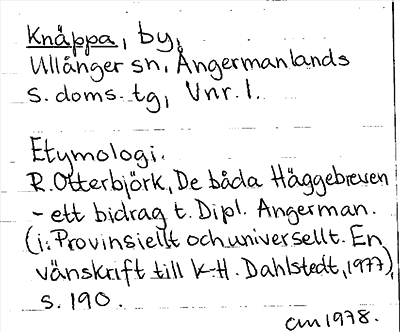 Knäppa, by,
Ullånger sn, Ångermanlands
s. doms. tg, Vnr. 1.
Etymologi.
R. Otterbjörk, De båda Häggebreven
- ett bidrag t. Dipl. Angerman.
(i: Provinsiellt och universellt. En
vänskrift till K-H. Dahlstedt, 1977),
s. 190.
am 1978.